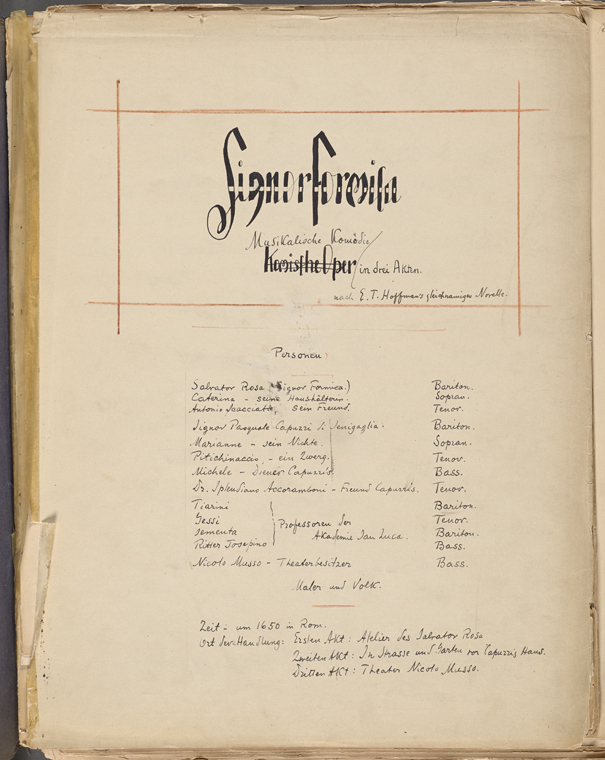 Signor Formica
Musikalische Komödie
Komische Oper in drei Akten.
nach E. T. Hoffman's gleichnamiger Novelle.
Personen:
Salvator Rosa (Signor Formica.) Bariton.
Caterina - seine Haushälterin. Sopran.
Antonio Scacciati, sein Freund. Tenor.
Signor Pasquale Capuzzi di Senigaglia. Bariton.
Marianne - sein Nichte. Sopran.
Pitichinaccio - ein Zwerg. Tenor.
Michele - Diener Capuzzis Bass.
Dr. Splendiano Accoramboni - Freund Capuzzis. Tenor.
Tiarini Bariton.
Gessi Professoren der Tenor.
Sementa Akademie San Luca. Bariton.
Ritter Josepino Bass.
Nicolo Musso - Theaterbesitzer Bass.
Maler und Volk.
Zeit: um 1650 in Rom.
Ort der Handlung: Ersten Akt: Atelier des Salvator Rosa
Zweiten Akt: In Strasse und Garten vor Capuzzis Haus.
Dritten Akt: Theater Nicolo Musso.